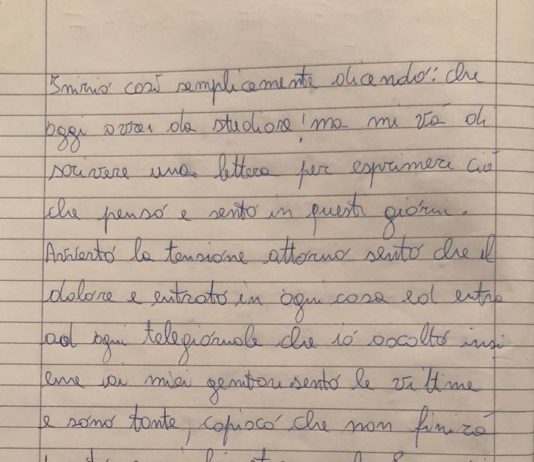 Inizió così semplicemente dicendó: che
oggi avrei da studiare! ma mi vá di
scrivere una lettera per esprimere ció
che pensó e sento in questi giórni.
Avvertó la tensione attorno sentó che il
dolore e entrató in ógni cosa ed entra
ad ogni telegiórnale che ió ascoltó insi
eme ai miei genitori sentó le vittime
e sónó tante, capiscó che non finirá